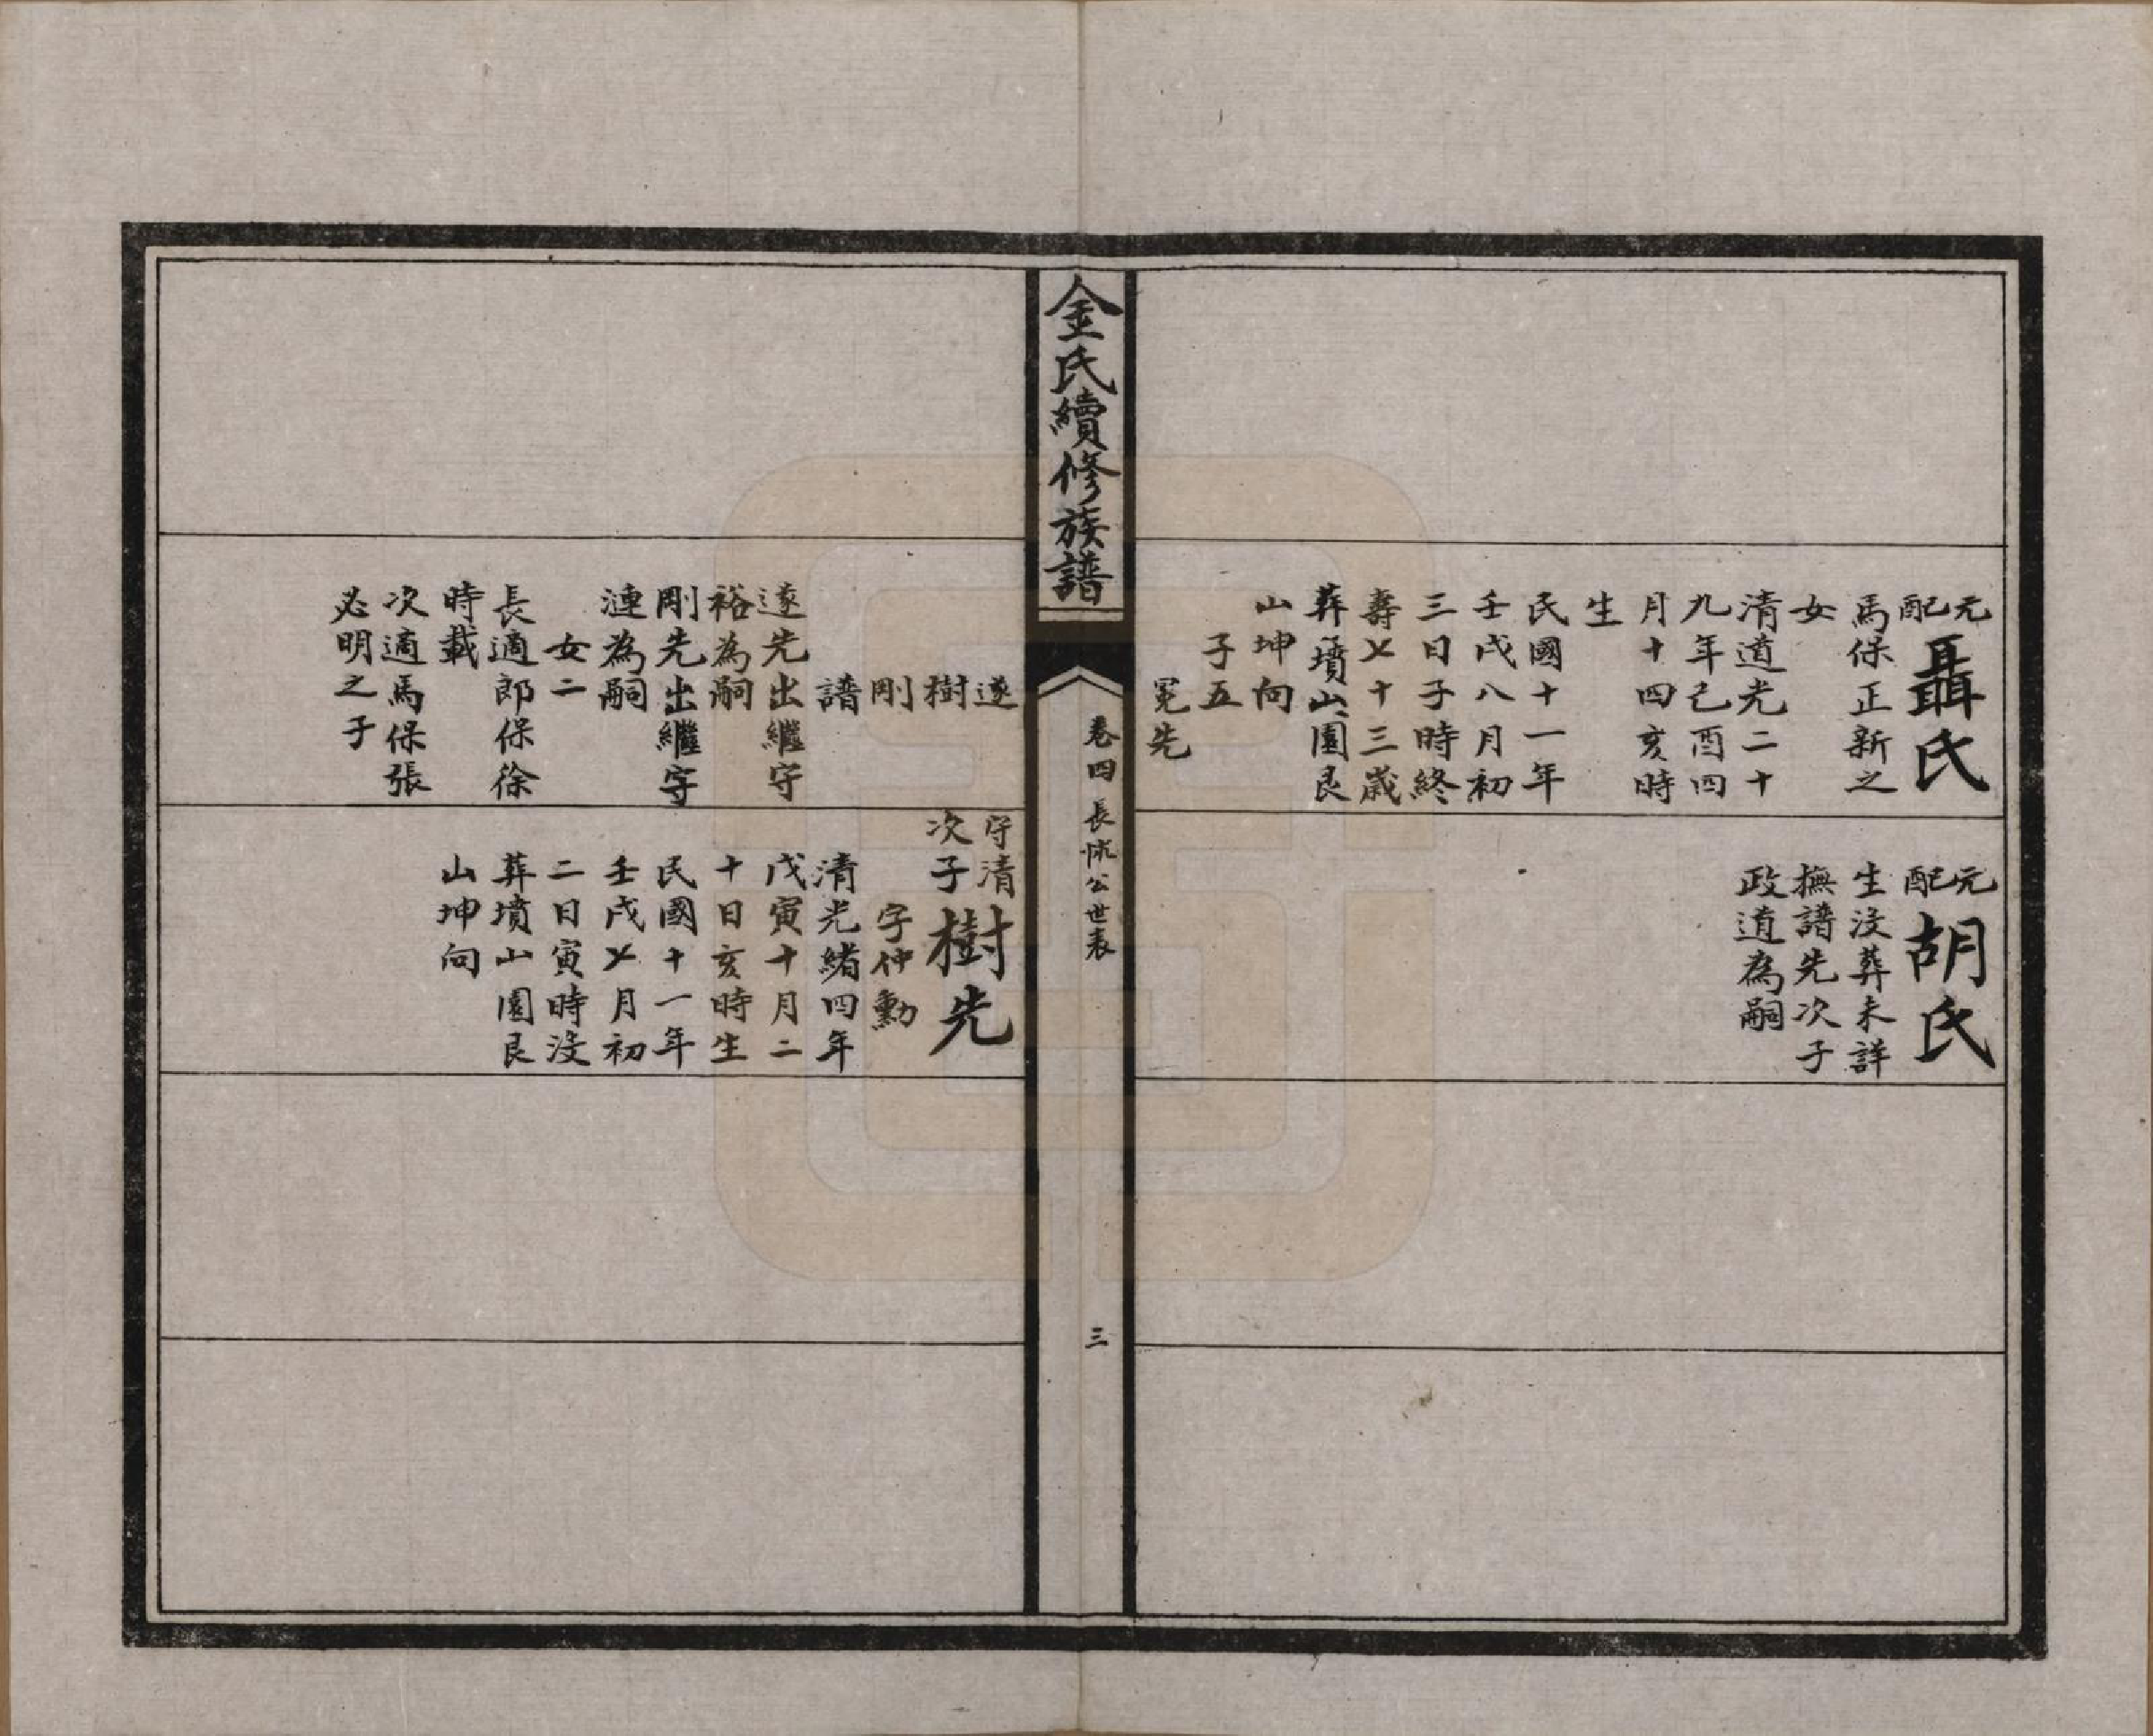 元配聶氏
馬保正新之
女
清道光二十
九年己酉四
月十四亥時
生
民國十一年
壬戌八月初
三日子時終
壽七十三歲
葬墳山園艮
山坤向
子五
冕先
元配胡氏
生沒葬未詳
撫譜先次子
政道為嗣
金氏續修族譜
卷四 長公世表
三
遂
樹
剛
譜
遂先出繼守
裕為嗣
剛先出繼守
漣為嗣
女二
長適郎保徐
時載
次適馬保張
必明之子
守清次子樹先
字仲勳
清光緒四年
戊寅十月二
十日亥時生
民國十一年
壬戌七月初
二日寅時沒
葬墳山園艮
山坤向